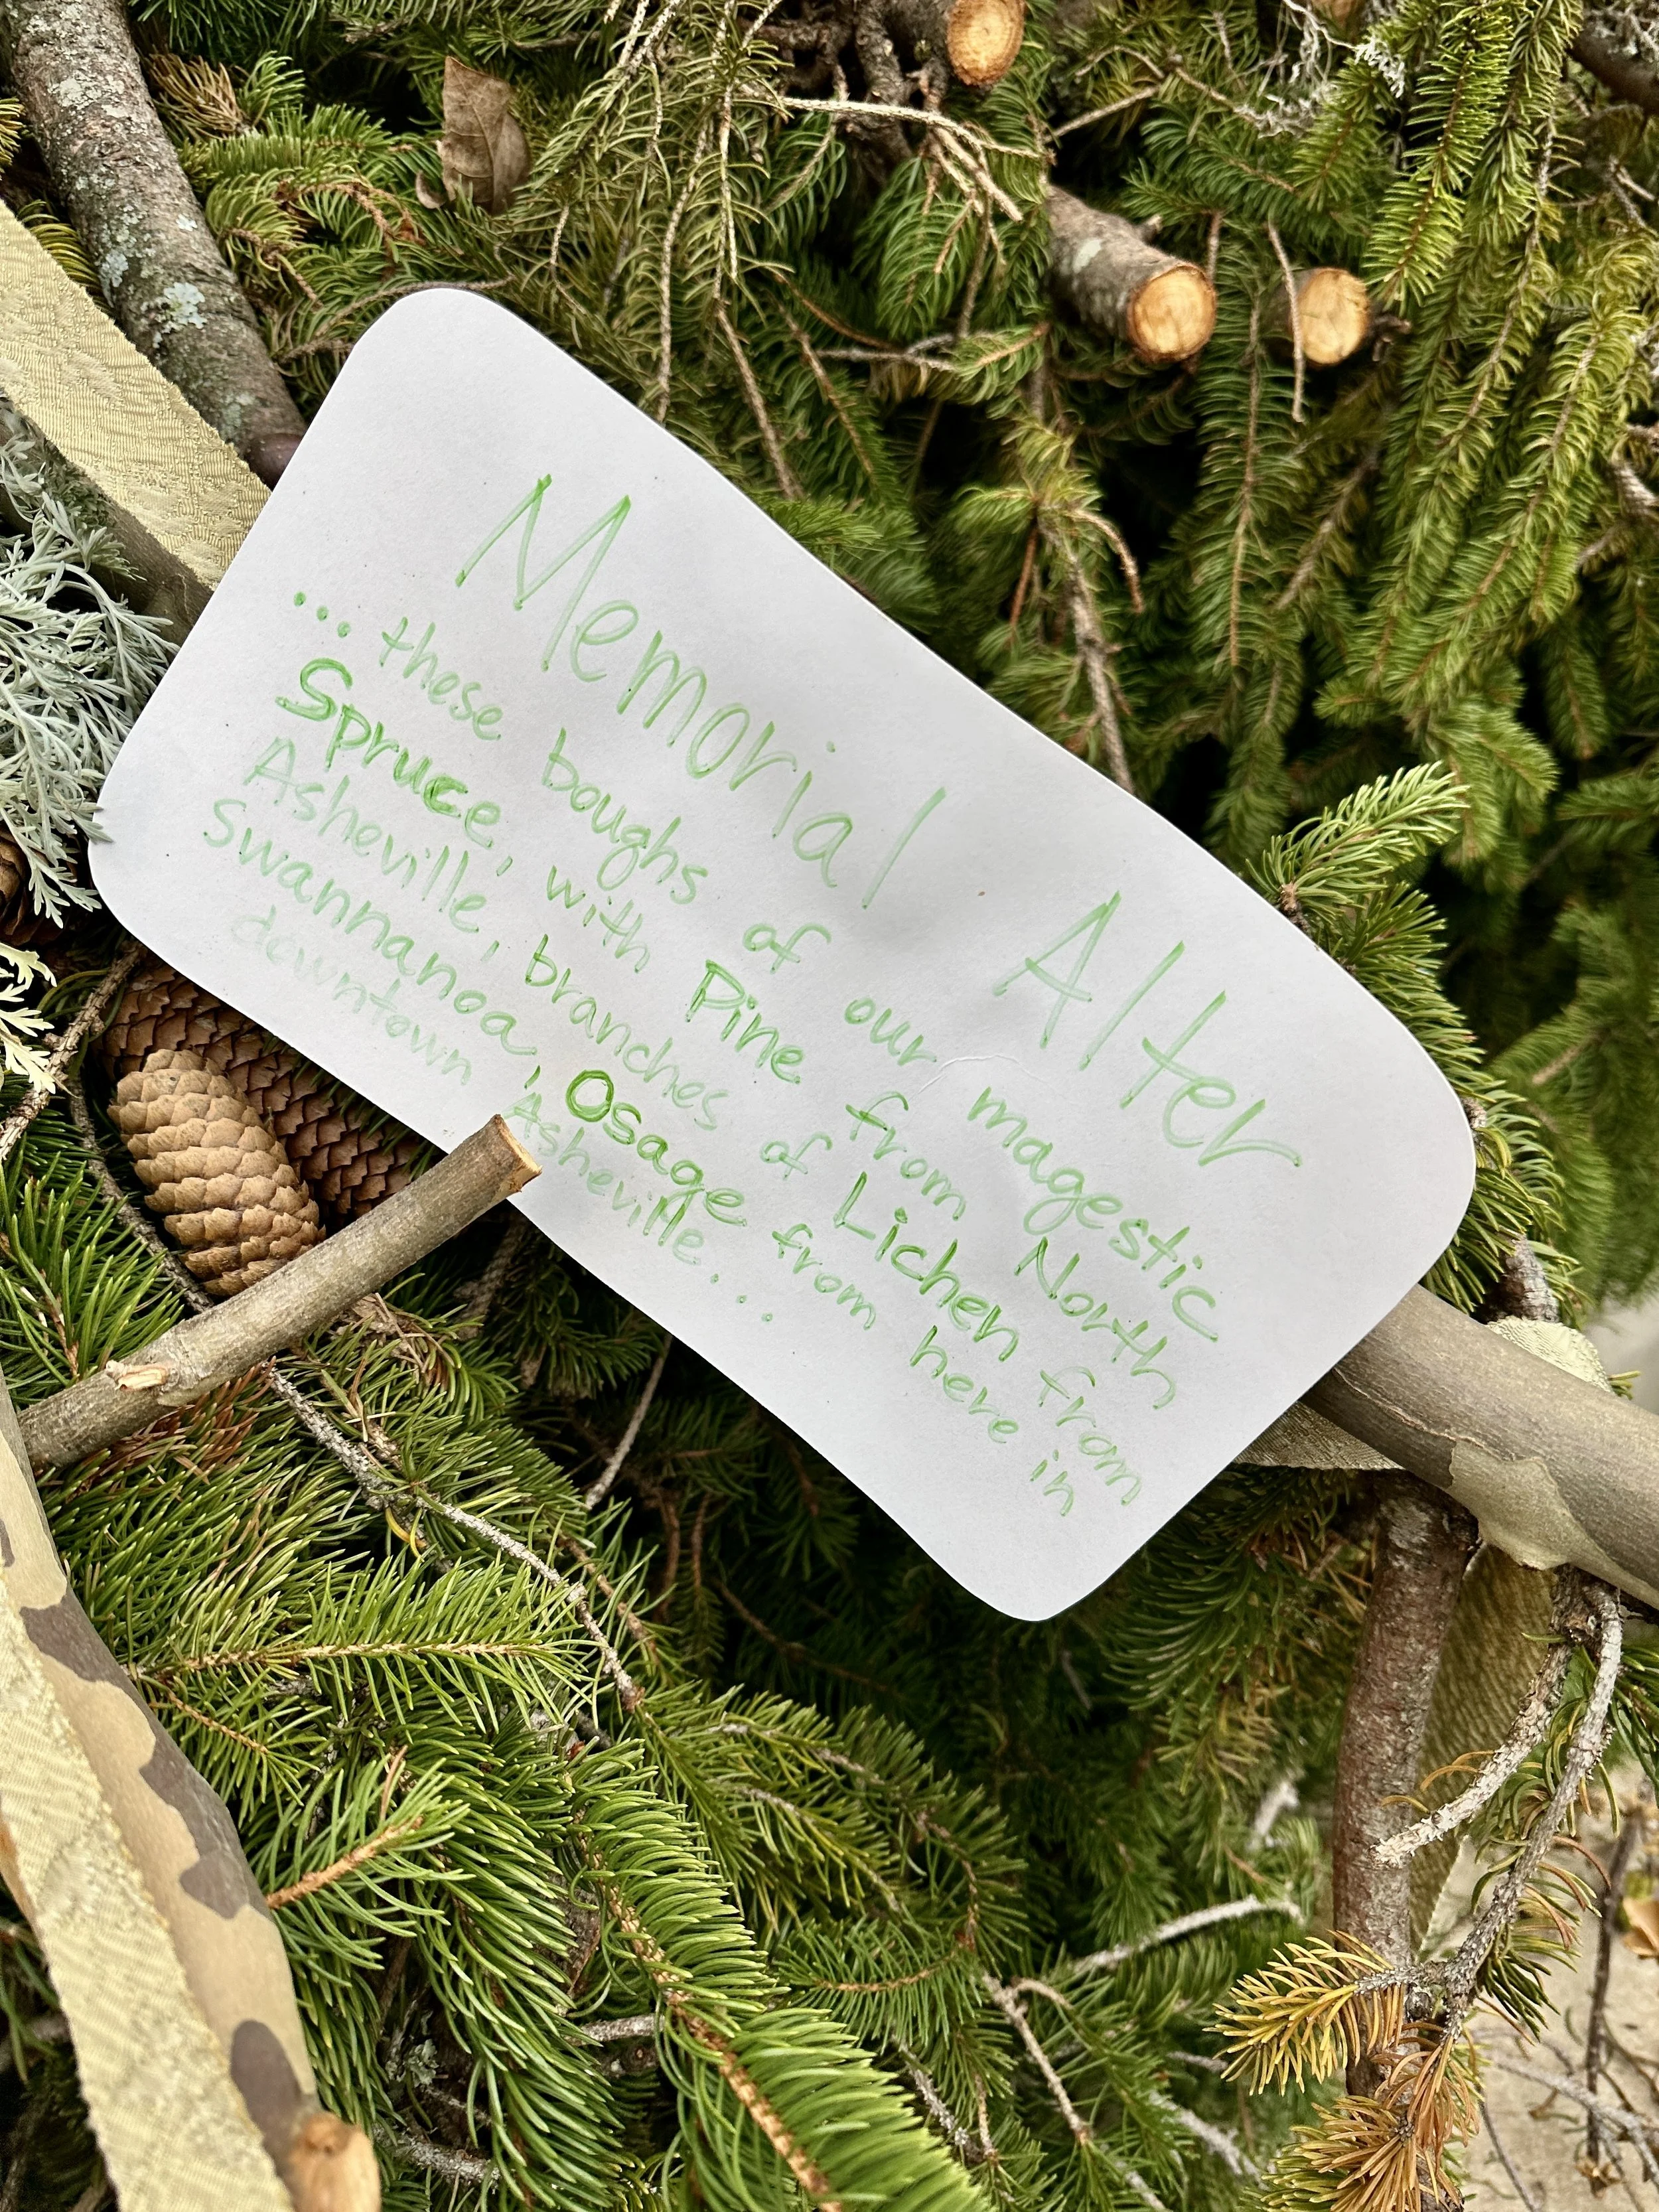 Memorial Alter
... these boughs of our magestic
Spruce, with Pine from North
Asheville, branches of Lichen from
Swannanoa, Osage from here in
downtown Asheville...